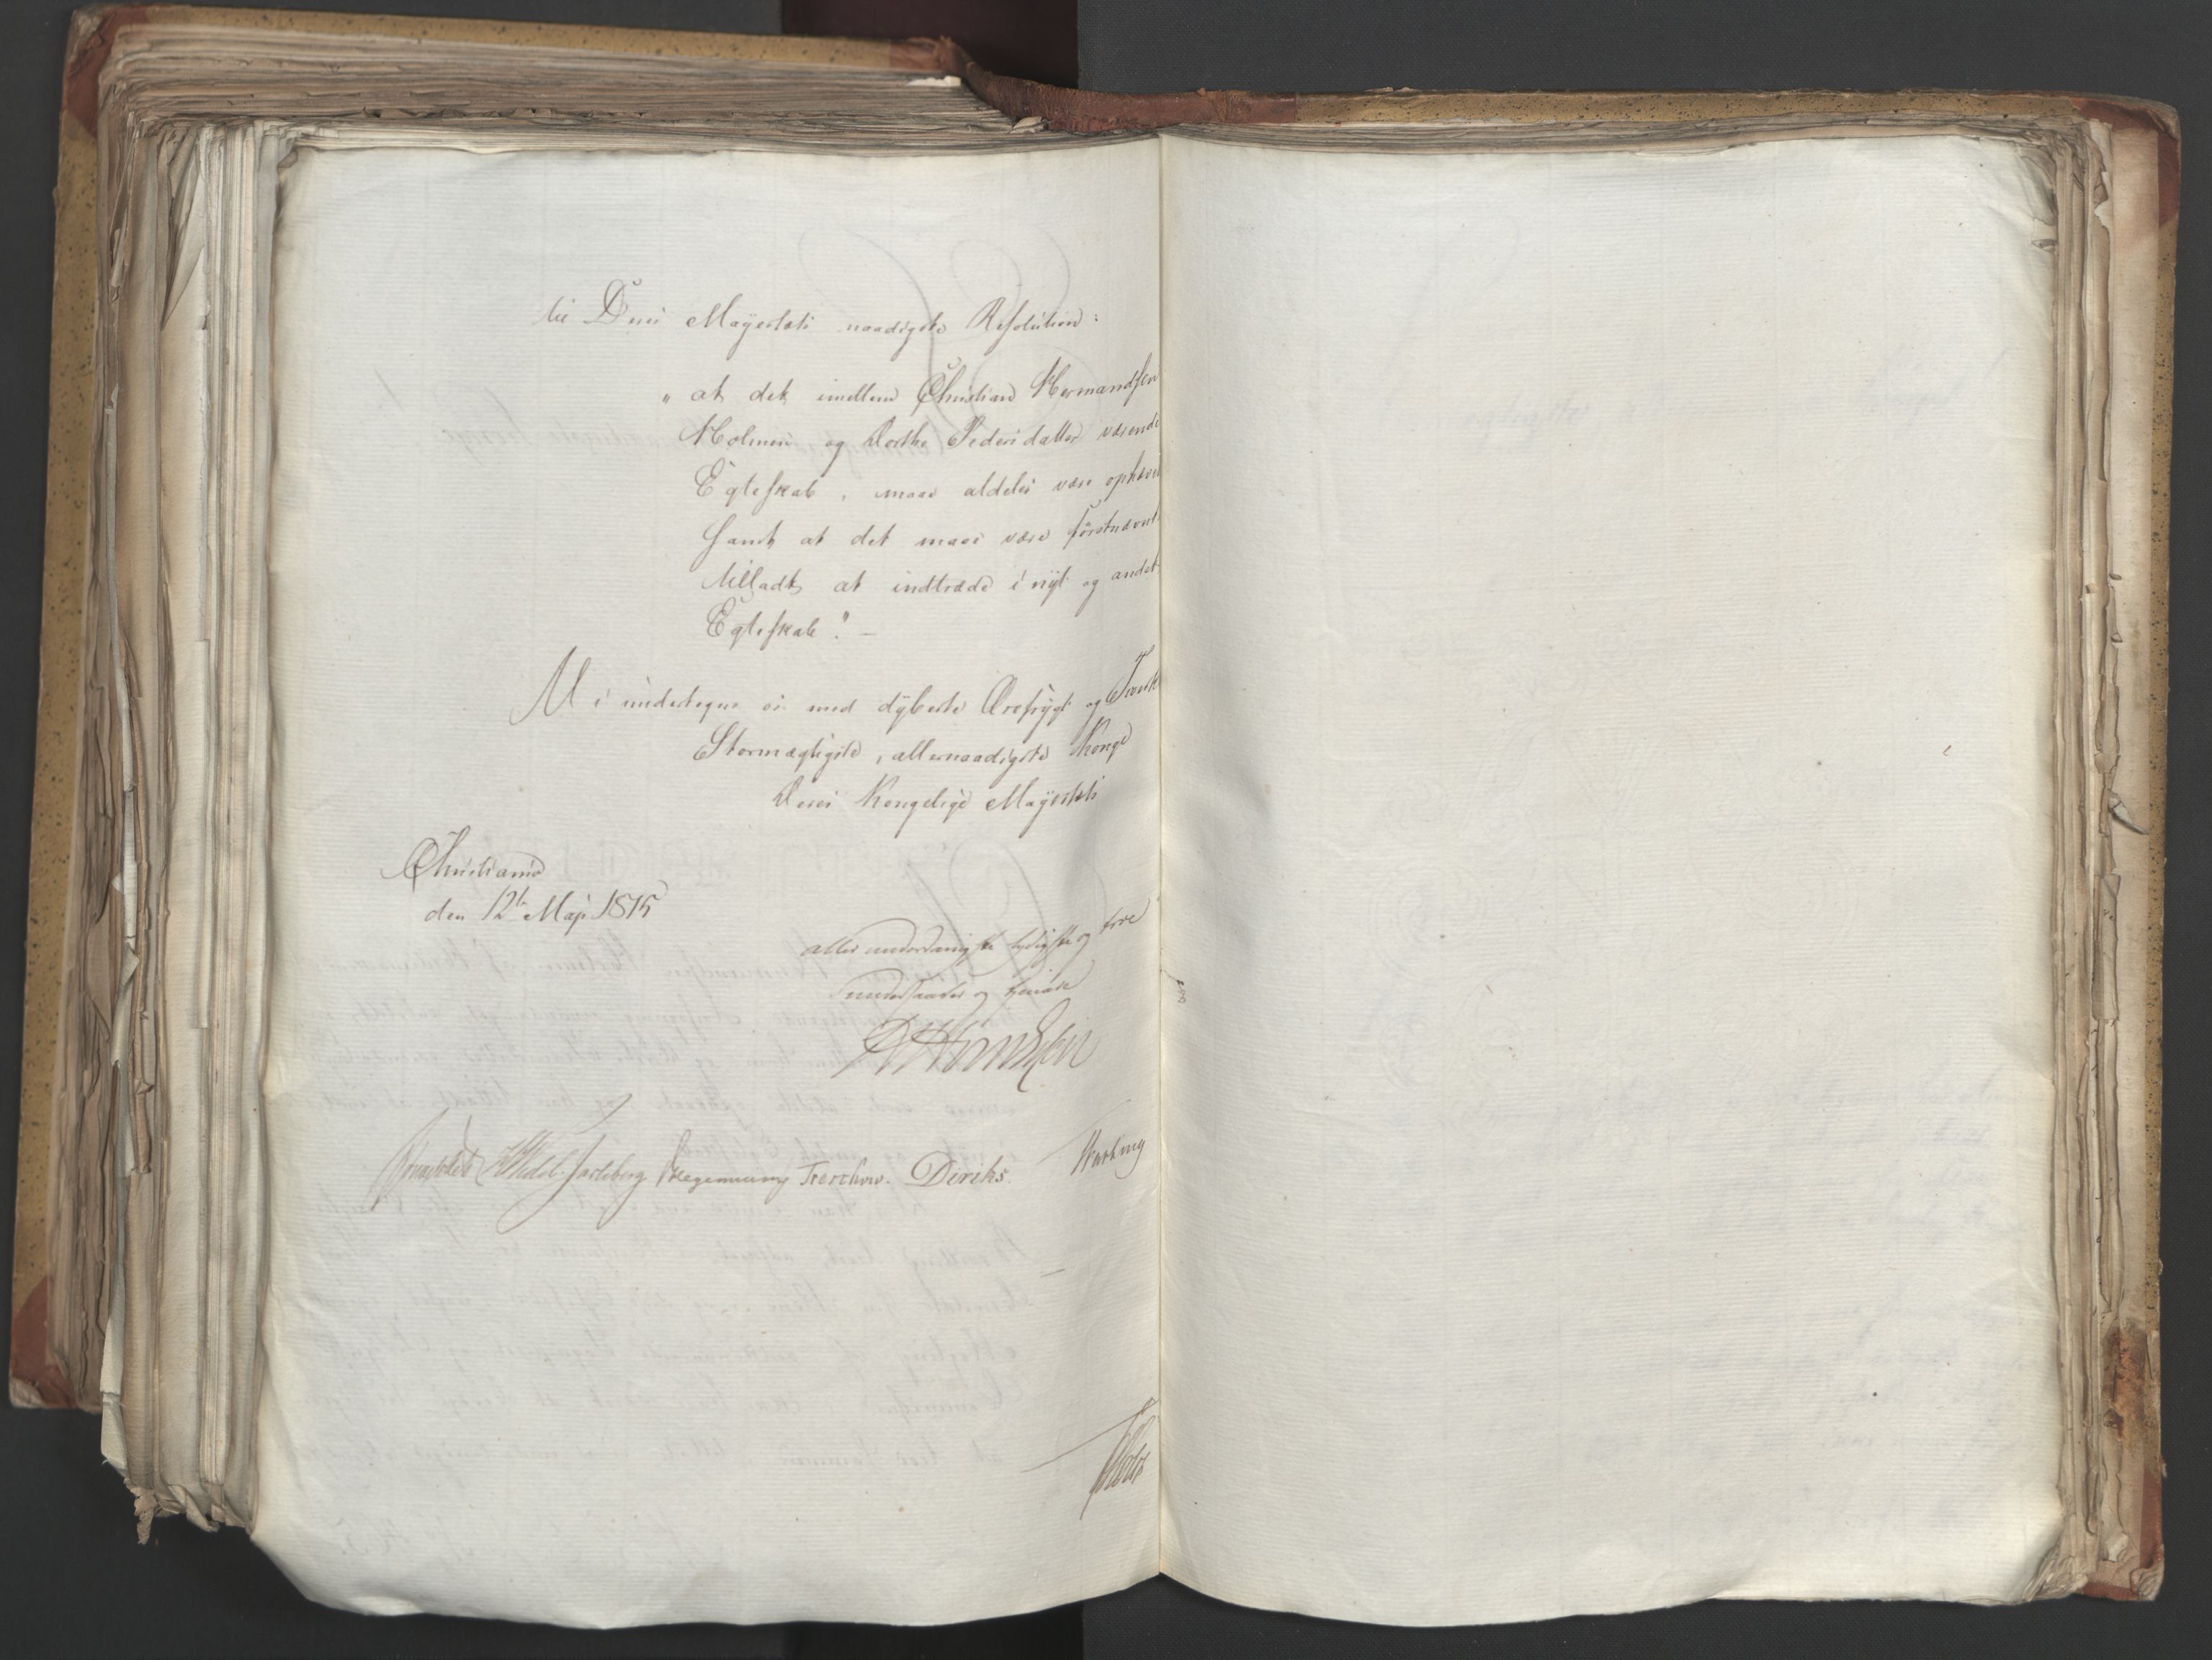 til Deres Mayestæts naadigste Resolution:
„ at det imellem Christian Hermandsen
Holmen og Dorthe Pedersdatter værende
Egteskab, maae aldeles være ophævet
samt at det maae være førstnævnte
tilladt at indtræde i nyt og andet
Egteskab." —
Vi undertegne os med dybeste Ærefrygt og Troeskab
Stormægtigste, allernaadigste Konge
Deres Kongelige Mayestæts
Christiania
den 12te Maji 1815
allerunderdanigste lydigste og troe
undersaatter og tienere
Sommerhielm Wedel-Jarlsberg Hegermann Treschow. Diriks.